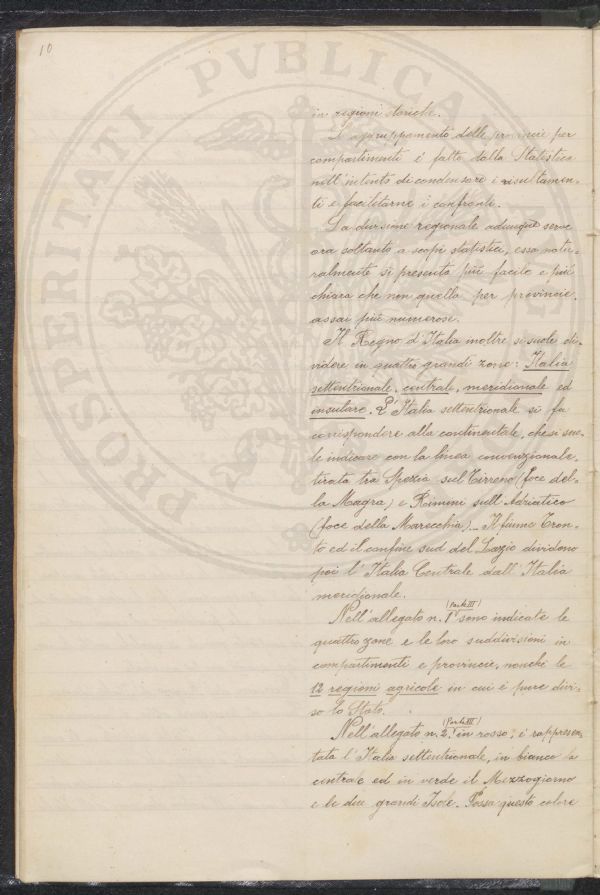 10
PROSPERITATI PVBLICAE
in regioni storiche.
L'aggruppamento delle provincie per
compartimenti è fatto dalla Statistica
nell'intento di condensare i risultamen-
ti e facilitarne i confronti.
La divisione regionale adunque serve
ora soltanto a scopi statistici, essa natu-
ralmente si presenta più facile e più
chiara che non quella per provincie,
assai più numerose.
Il Regno d'Italia inoltre si suole di-
videre in quattro grandi zone: Italia
settentrionale, centrale, meridionale ed
insulare. L'Italia settentrionale si fa
corrispondere alla continentale, che si suo-
le indicare con la linea convenzionale
tirata tra Spezia sul Tirreno (foce del-
la Magra) e Rimini sull'Adriatico
(foce della Marecchia). Il fiume Tron-
to ed il confine sud del Lazio dividono
poi l'Italia Centrale dall'Italia
meridionale.
(Parte III)
Nell'allegato n. 1 sono indicate le
quattro zone e le loro suddivisioni in
compartimenti e provincie, nonchè le
12 regioni agricole in cui è pure divi-
so lo Stato.
(Parte III)
Nell'allegato n. 2, in rosso, è rappresen-
tata l'Italia settentrionale, in bianco la
centrale ed in verde il Mezzogiorno
e le due grandi Isole. Possa questo colore